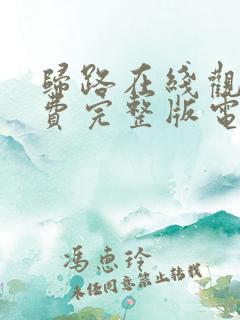 歸路在綫觀
費完整版電
馮惠玲
未经同意禁止转载